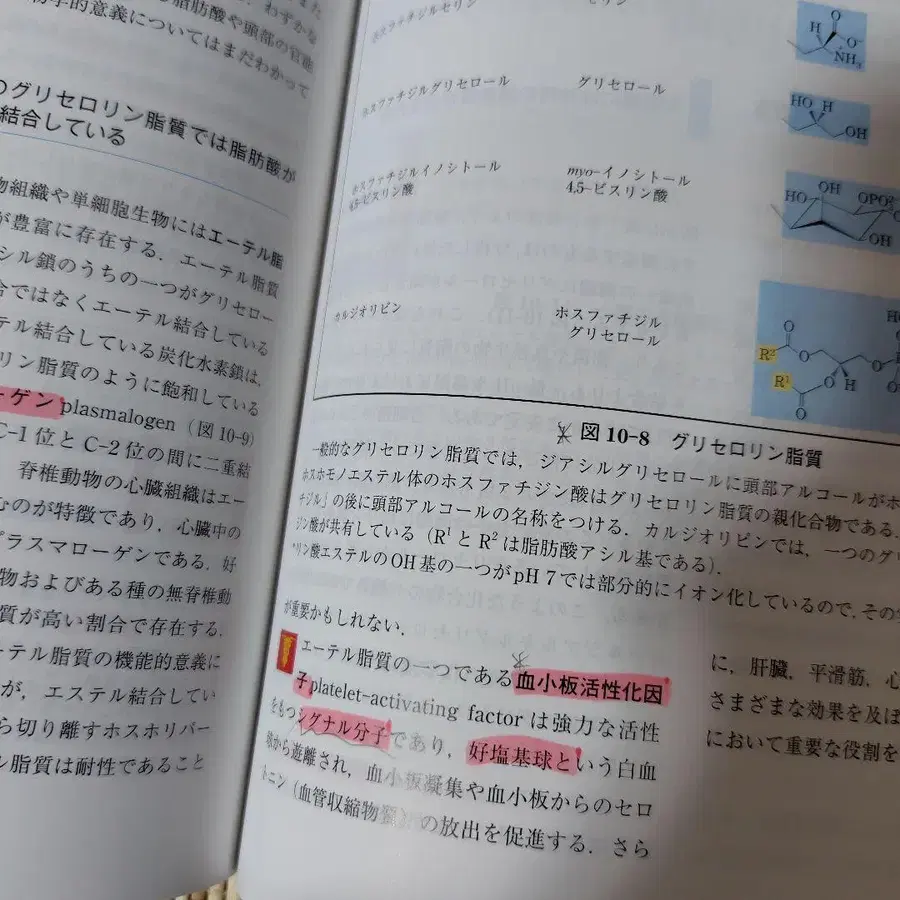 脂肪酸や頭部の官能
学的意義についてはまだわかって
のグリセロリン脂質では脂肪酸が
結合している
物組織や単細胞生物にはエーテル脂
が豊富に存在する．エーテル脂質
シル鎖のうちの一つがグリセロー
合ではなくエーテル結合している
テル結合している炭化水素鎖は，
リン脂質のように飽和している
ーゲン plasmalogen（図 10-9）
C-1 位と C-2 位の間に二重結
脊椎動物の心臓組織はエー
むのが特徴であり，心臓中の
プラスマローゲンである．好
物およびある種の無脊椎動
質が高い割合で存在する．
ーテル脂質の機能的意義に
が，エステル結合してい
ら切り離すホスホリパー
ル脂質は耐性であること
ホスファチジルセリン
セリン
H O O⁻ NH₃
ホスファチジルグリセロール
グリセロール
HO H OH
ホスファチジルイノシトール
4,5-ビスリン酸
myo-イノシトール
4,5-ビスリン酸
HO OH OH
カルジオリピン
ホスファチジル
グリセロール
R² O O H R¹ O O
図 10-8 グリセロリン脂質
一般的なグリセロリン脂質では，ジアシルグリセロールに頭部アルコールがホ
ホスホモノエステル体のホスファチジン酸はグリセロリン脂質の親化合物である．
チジル」の後に頭部アルコールの名称をつける．カルジオリピンでは，一つのグリ
ジン酸が共有している（R¹ と R² は脂肪酸アシル基である）．
*リン酸エステルの OH 基の一つが pH 7 では部分的にイオン化しているので，その
が重要かもしれない．
エーテル脂質の一つである血小板活性化因
子 platelet-activating factor は強力な活性
をもつシグナル分子であり，好塩基球という白血
球から遊離され，血小板凝集や血小板からのセロ
トニン（血管収縮物質）の放出を促進する．さら
に，肝臓，平滑筋，心
さまざまな効果を及ぼ
において重要な役割を